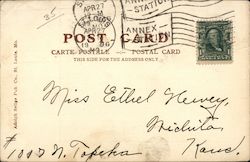 35
APR 27
ANNEX
STATION
POST CARD
CARTE POSTALE — POSTAL CARD
THIS SIDE FOR THE ADDRESS ONLY
Adolph Selige Pub. Co., St. Louis, Mo.
Miss Ethel
Wichita
Kans.
#1007 N. Topeka